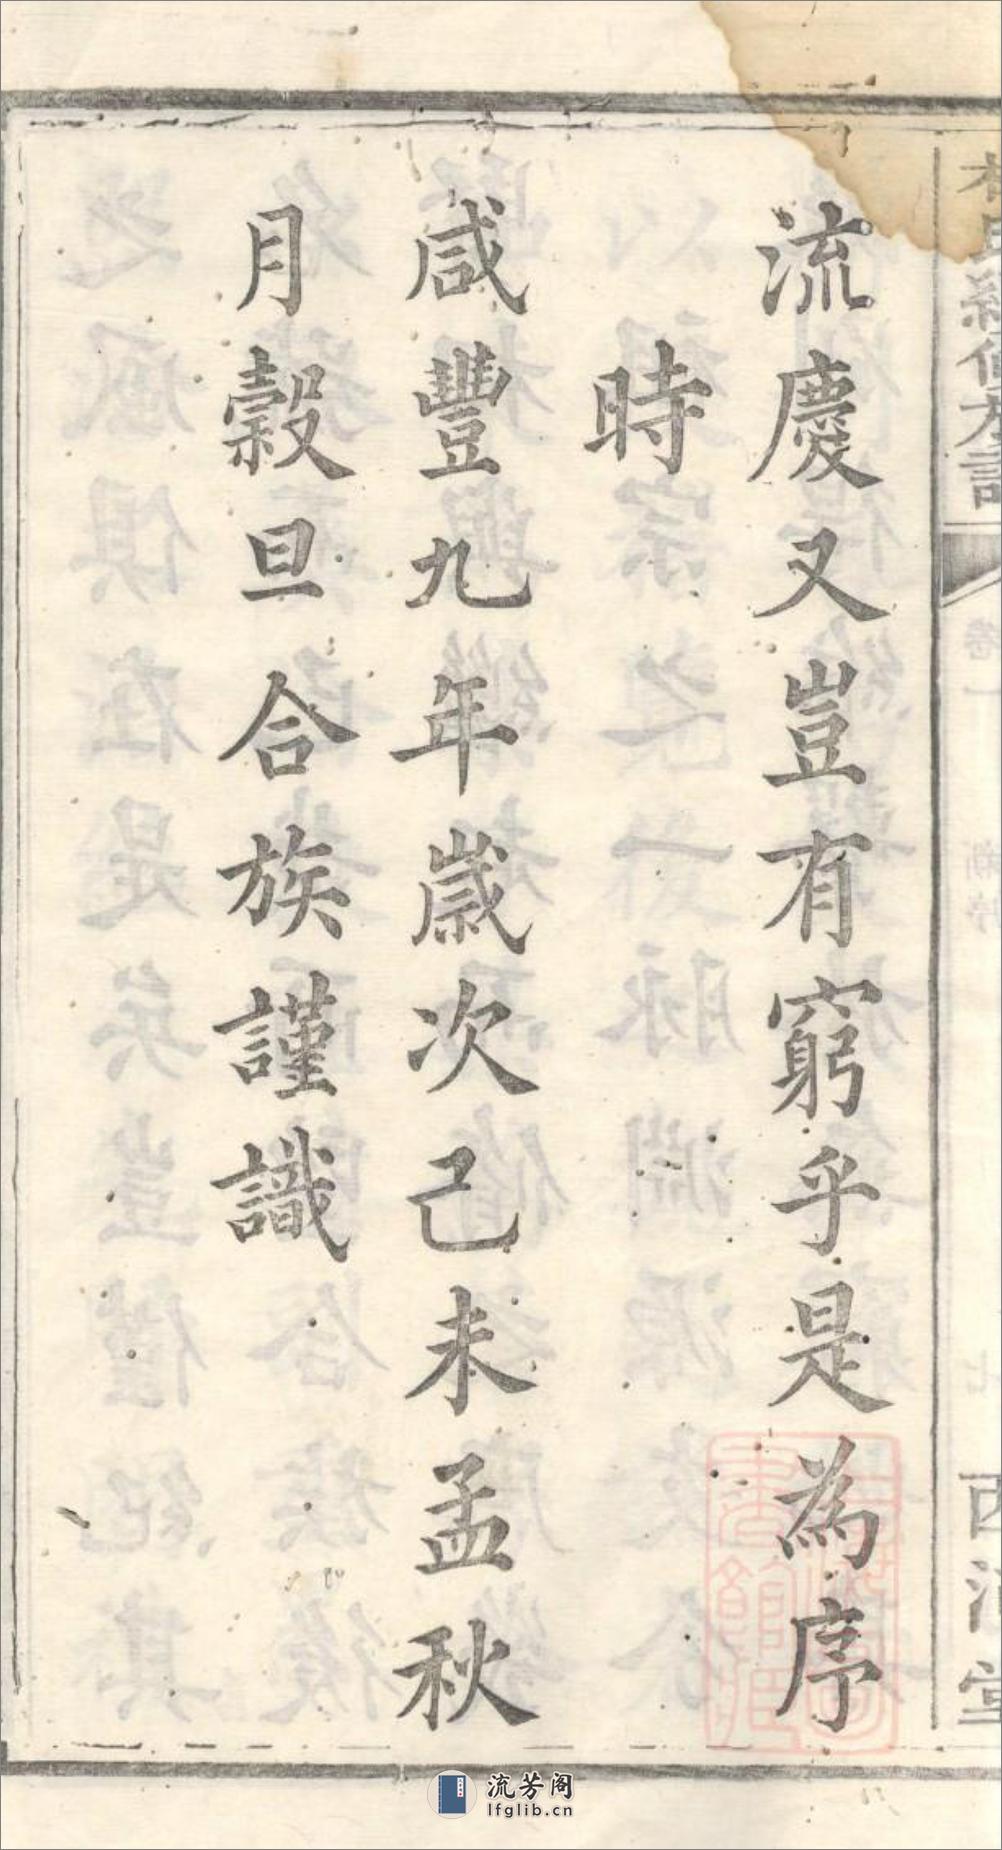 流慶又豈有窮乎是為序
時
咸豐九年歲次己未孟秋
月穀旦合族謹識
西河堂
流芳阁
lfglib.cn